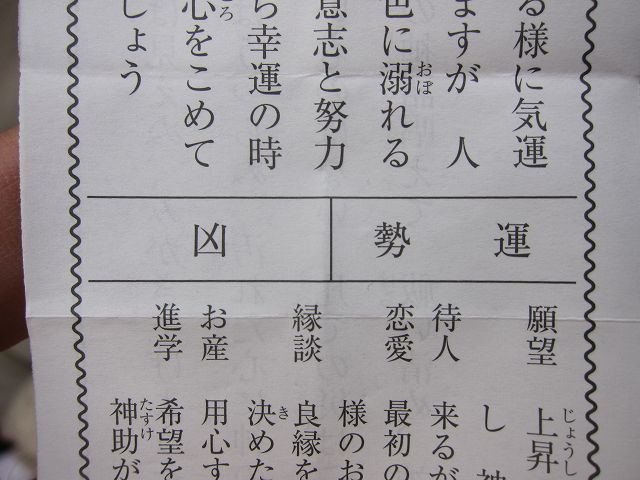 る様に気運
ますが 人
色に溺れる
意志と努力
ら幸運の時
心をこめて
しょう
運勢
凶
願望 上昇
し 神
待人 来るが
恋愛 最初の
様のお
縁談 良縁を
決めた
お産 用心す
進学 希望を
神助が